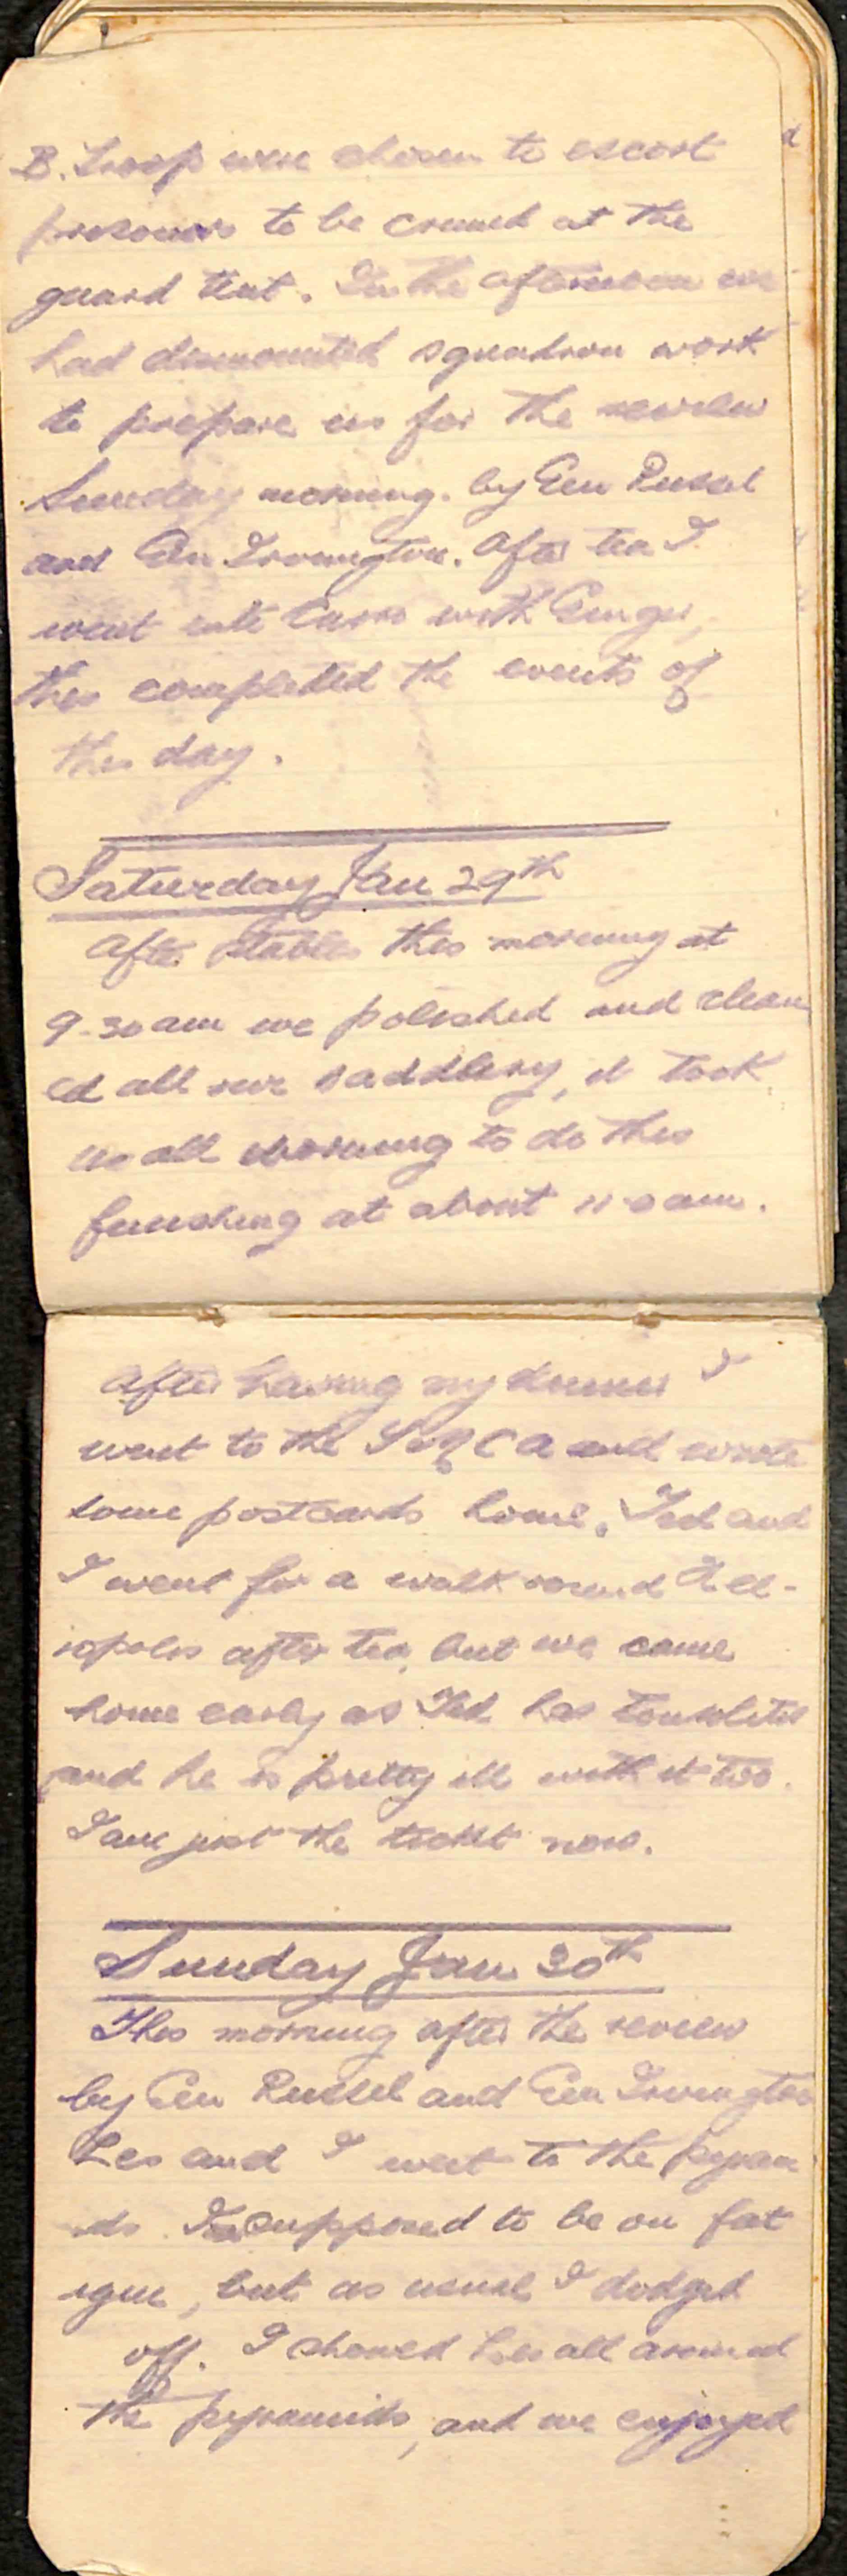 B. Troop were chosen to escort
prisoners to be crimed at the
guard tent. In the afternoon we
had dismounted squadron work
to prepare us for the review
Sunday morning. by Gen Russel
and Gen Irvington. After tea I
went into Cairo with Ginger,
this completed the events of
this day.
Saturday Jan 29th
After stables this morning at
9-30am we polished and clean
ed all our saddlery, it took
us all morning to do this
finishing at about 11-0am.
After having my dinner I
went to the YMCA and wrote
some postcards home. Ted and
I went for a walk round Hel-
iopolis after tea, but we came
home early as Ted has tonsolitis
and he is pretty ill with it too.
I am just the ticket now.
Sunday Jan 30th
This morning after the review
by Gen Russel and Gen Irvington
Les and I went to the pyram
ids. I supposed to be on fat
igue, but as usual I dodged
off. I showed Les all around
the pyramids, and we enjoyed